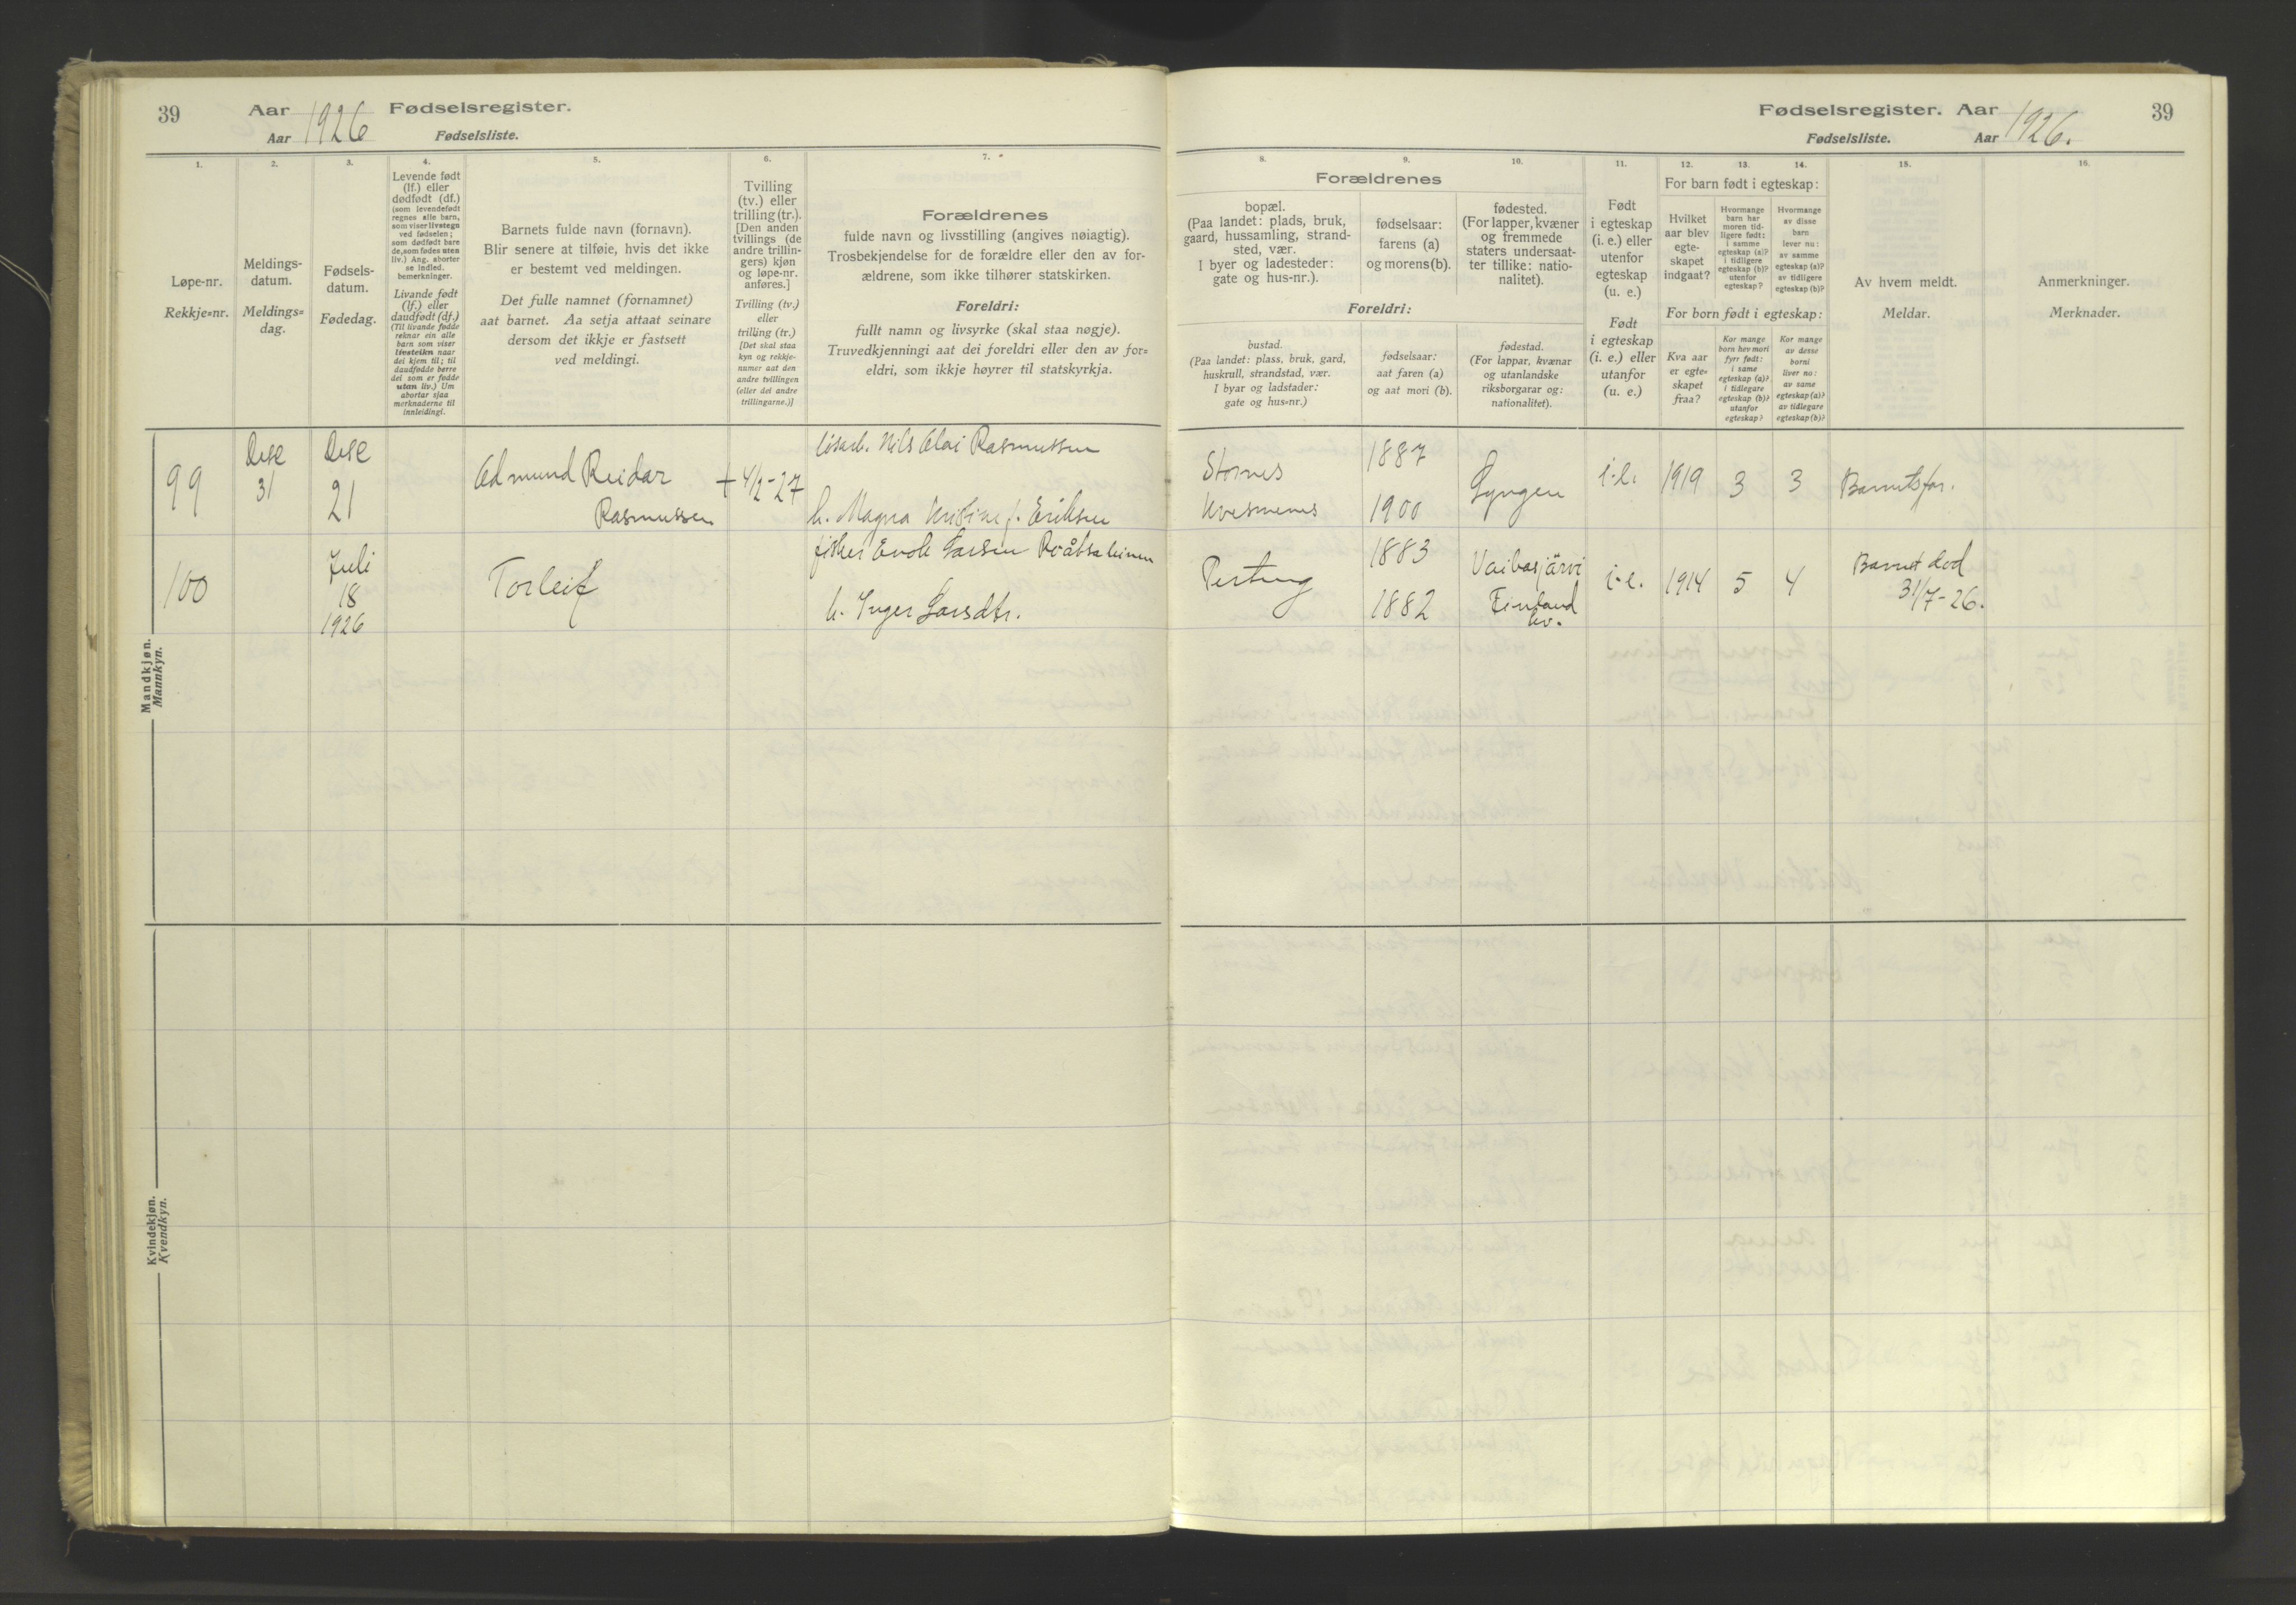 39 Aar 1926 Fødselsregister.
Aar Fødselsliste.
Fødselsregister. Aar 1926. 39
Fødselsliste. Aar
1.
Løpe-nr.
Rekkje=nr.
2.
Meldings-
datum.
Meldings=
dag.
3.
Fødsels-
datum.
Fødedag.
4.
Levende født
(lf.) eller
dødfødt (df.)
(som levendefødt
regnes alle barn,
som viser livstegn
ved fødselen;
som dødfødt bare
de, som fødes uten
liv.) Ang. aborter
se indled.
bemerkninger.
Livande født
(lf.) eller
daudfødt (df.)
(Til livande fødde
reknar ein alle
barn som viser
livsteikn naar
dei kjem til; til
daudfødde berre
dei som er fødde
utan liv.) Um
abortar sjaa
merknaderne til
innleidingi.
5.
Barnets fulde navn (fornavn).
Blir senere at tilføie, hvis det ikke
er bestemt ved meldingen.
Det fulle namnet (fornamnet)
aat barnet. Aa setja attaat seinare
dersom det ikkje er fastsett
ved meldingi.
6.
Tvilling
(tv.) eller
trilling (tr.).
[Den anden
tvillings (de
andre trillin-
gers) kjøn
og løpe-nr.
anføres.]
Tvilling (tv.)
eller
trilling (tr.)
[Det skal staa
kyn og rekkje-
numer aat den
andre tvillingen
(eller dei andre
trillingarne.)]
7.
Forældrenes
fulde navn og livsstilling (angives nøiagtig).
Trosbekjendelse for de forældre eller den av for-
ældrene, som ikke tilhører statskirken.
Foreldri:
fullt namn og livsyrke (skal staa nøgje).
Truvedkjenningi aat dei foreldri eller den av for=
eldri, som ikkje høyrer til statskyrkja.
8. 9. 10.
Forældrenes
bopæl.
(Paa landet: plads, bruk,
gaard, hussamling, strand-
sted, vær.
I byer og ladesteder:
gate og hus-nr.).
fødselsaar:
farens (a)
og morens (b).
fødested.
(For lapper, kvæner
og fremmede
staters undersaat-
ter tillike: natio-
nalitet).
Foreldri:
bustad.
(Paa landet: plass, bruk, gard,
huskrull, strandstad, vær.
I byar og ladstader:
gate og hus=nr.)
fødselsaar:
aat faren (a)
og aat mori (b).
fødestad.
(For lappar, kvænar
og utanlandske
riksborgarar og:
nationalitet).
11.
Født
i egteskap
(i. e.) eller
utenfor
egteskap
(u. e.)
Født
i egteskap
(i. e.) eller
utanfor
(u. e.)
12. 13. 14.
For barn født i egteskap:
Hvilket
aar blev
egte-
skapet
indgaat?
Hvormange
barn har
moren tid-
ligere født:
i samme
egteskap (a)?
i tidligere
egteskap (b)?
utenfor
egteskap?
Hvormange
av disse
barn
lever nu:
av samme
egteskap (a)?
av tidligere
egteskap (b)?
For born født i egteskap:
Kva aar
er egte=
skapet
fraa?
Kor mange
born hev mori
fyrr født:
i same
egteskap (a)?
i tidlegare
egteskap (b)?
utanfor
egteskap?
Kor mange
av desse
borni
liver no:
av same
egteskap (a)?
av tidlegare
egteskap (b)?
15.
Av hvem meldt.
Meldar.
16.
Anmerkninger.
Merknader.
Mandkjøn.
Mannkyn.
99 Dese 31 Dese 21
Edmund Reidar
Rasmussen
+ 4/2-27
Nils Olai Rasmussen
h. Magna Kristine f. Eriksen
Stornes
Kvesmenes
1887
1900
Lyngen i.e. 1919 3 3 Barnets far.
100 Juli 18 1926
Torleif
fisker Evok Larsen
h. Inger Larsdtr.
1883
1882
Finland
i.e. 1914 5 4
Barnet død
31/7-26.
Kvindekjøn.
Kvendkyn.